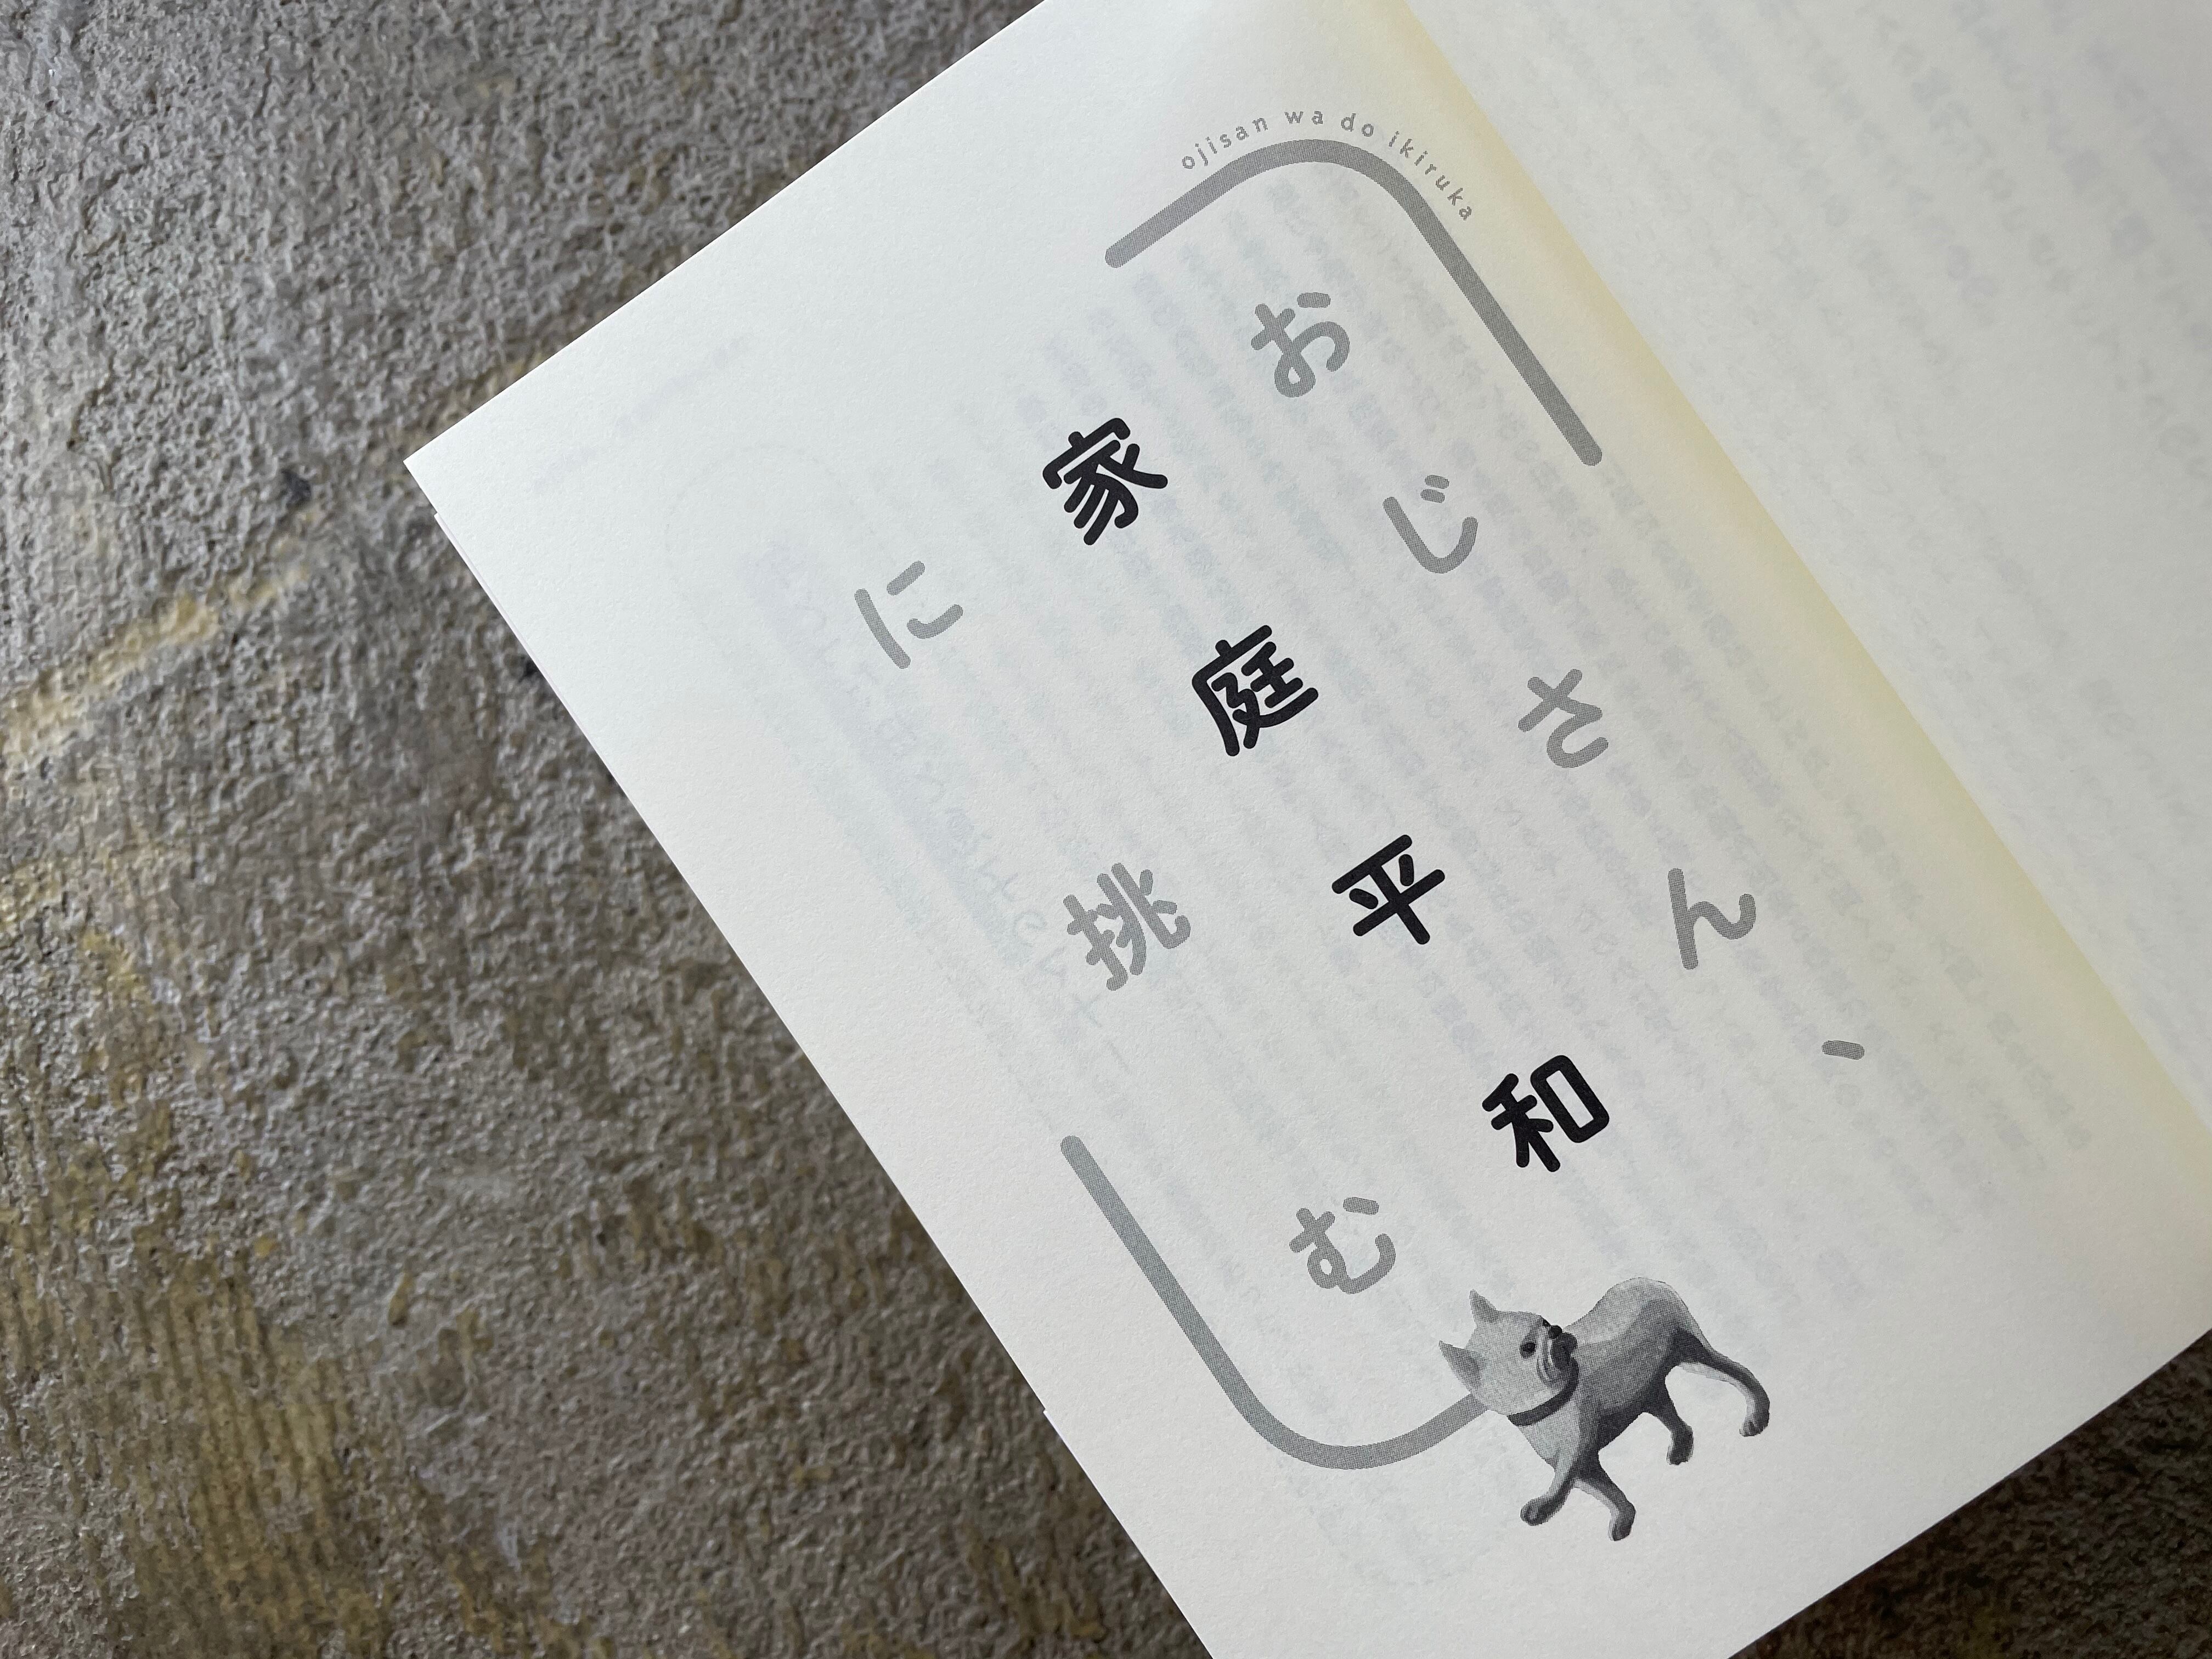 ojisan wa do ikiruka
おじさん、
家庭平和
に挑む